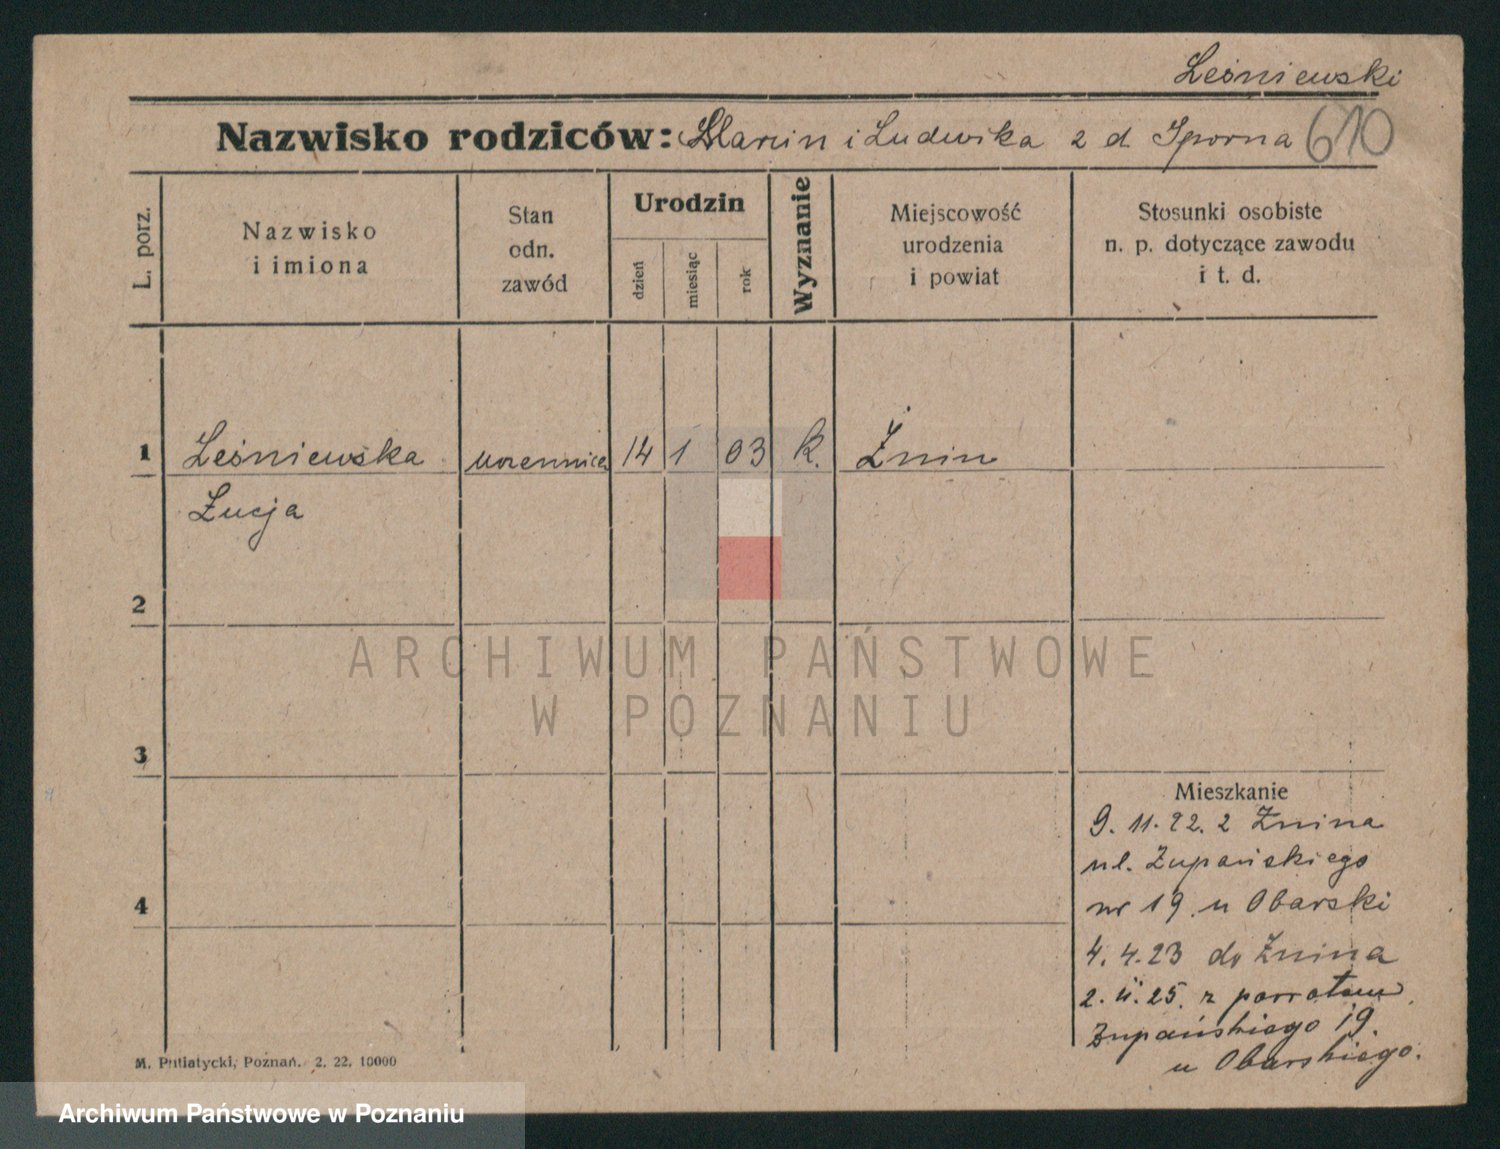 Leśniewski
Nazwisko rodziców: Marcin i Ludwika z d Sporna 610
L. porz.
Nazwisko
i imiona
Stan
odn.
zawód
Urodzin
dzień
miesiąc
rok
Wyznanie
Miejscowość
urodzenia
i powiat
Stosunki osobiste
n. p. dotyczące zawodu
i t. d.
1 Leśniewska uczennica 14 1 03 k. Żnin
Łucja
2
3
4
Mieszkanie
9. 11. 22. z Żnina
ul. Żupańskiego
nr 19 u Obarski
4. 4. 23 do Żnina
2. 4. 25. z powrotem
Żupańskiego 19.
u Obarskiego.
M. Putiatycki, Poznań. 2. 22. 10000
ARCHIWUM PAŃSTWOWE
W POZNANIU
Archiwum Państwowe w Poznaniu